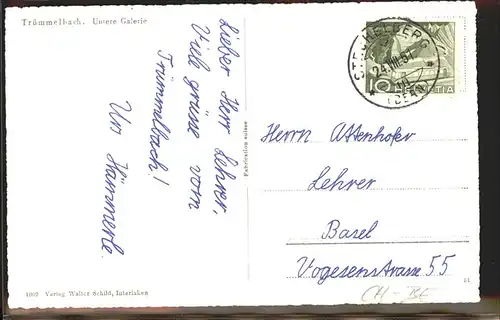 Trümmelbach. Untere Galerie
Lieber Herr Lehrer,
Viele grüsse vom
Trümmelbach!
Urs Hämmerle.
Fabrication suisse
STECHELBERG
24.VIII.51
(BERN)
10 HELVETIA
Herrn Attenhofer
Lehrer
Basel
Vogesenstrasse 55
1609 Verlag Walter Schild, Interlaken
51
CH - BE